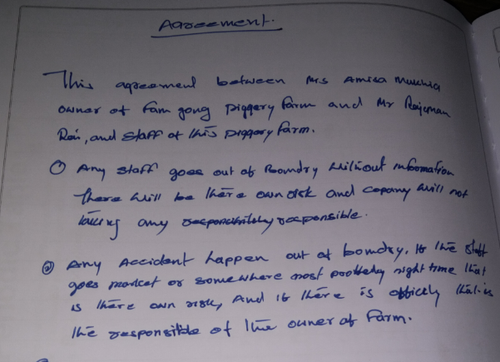 Agreement.
This agreement between Mrs Amisa Mukhia
owner of Fam gong piggery farm and Mr Rajuman
Rai, and staff of this piggery farm.
① Any staff goes out of Boundry without information
there will be there own risk and copany will not
taking any responsibility responsible.
② Any Accident happen out of boundry, If the staff
goes market or somewhere most probbely night time that
is there own risk, And if there is officely that is
the responsible of the owner of Farm.